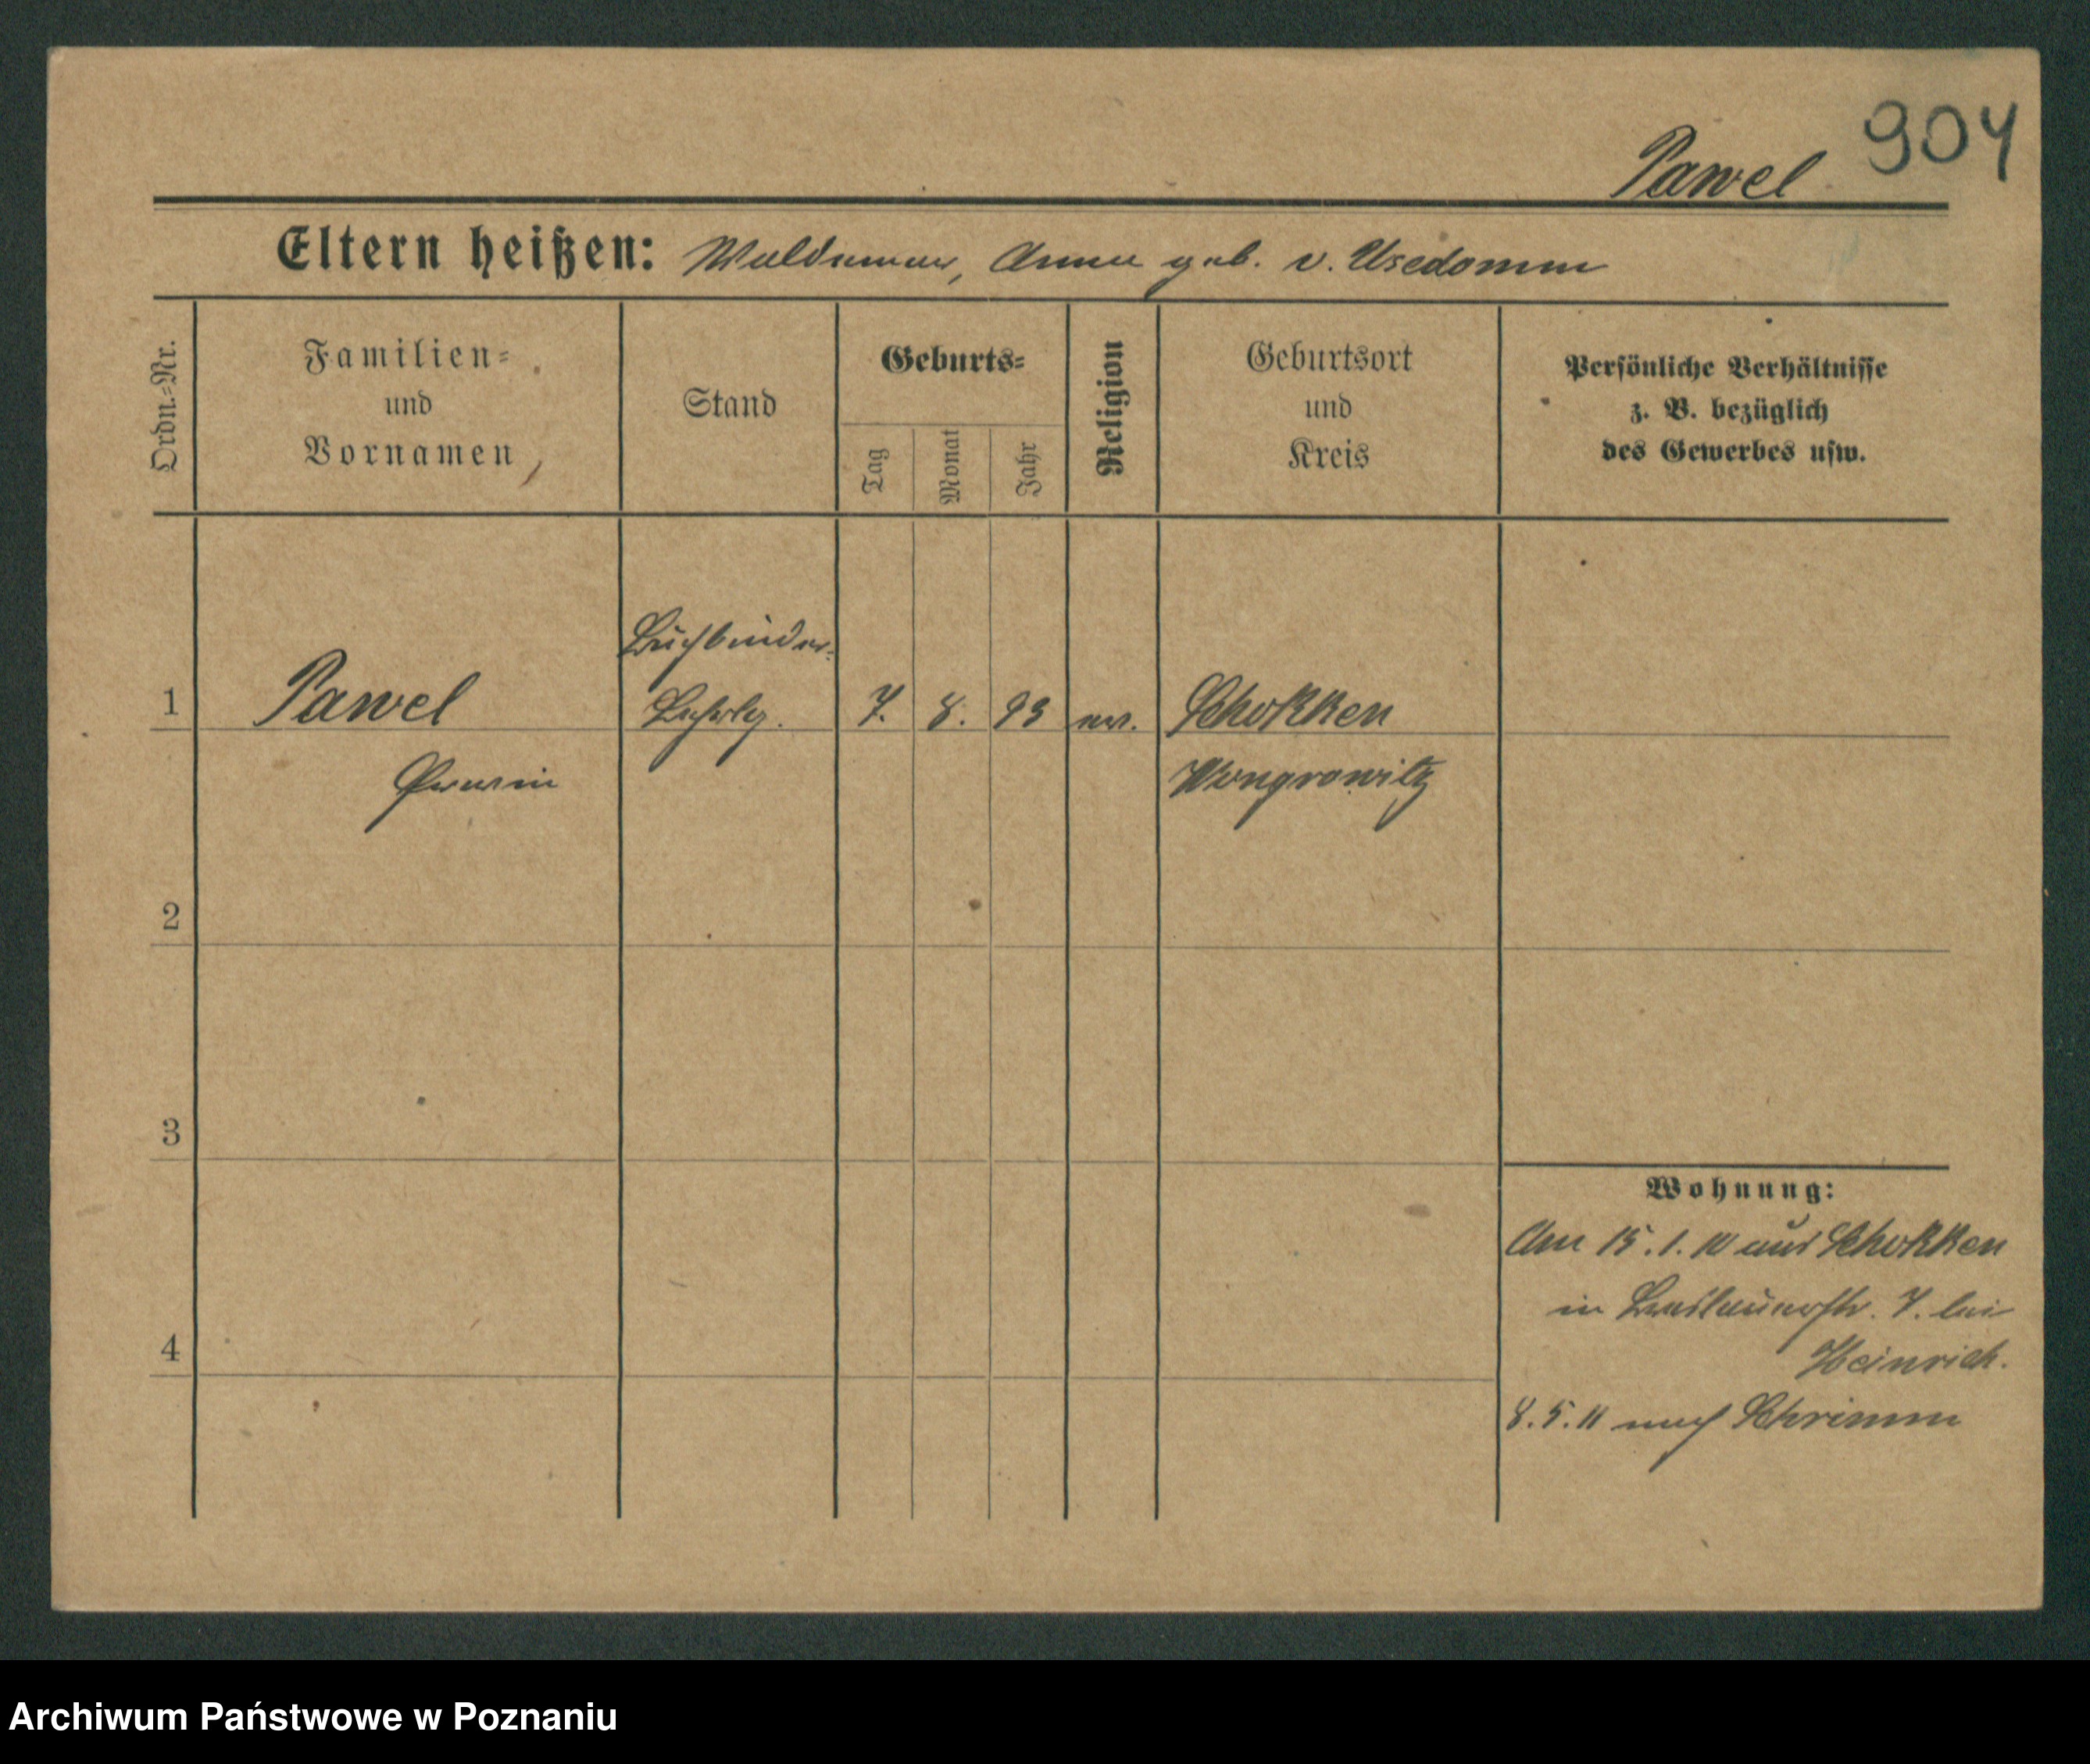 904
Pawel
Eltern heißen: Waldemar, Anna geb. v. Usedomm
Ordn.=Nr.
Familien=
und
Vornamen
Stand
Geburts=
Tag
Monat
Jahr
Religion
Geburtsort
und
Kreis
Persönliche Verhältnisse
z. B. bezüglich
des Gewerbes usw.
Buchbinder-
1 Pawel Lehrlg. 7. 8. 93 ev. Schokken
Erwin Wongrowitz
2
3
Wohnung:
Am 15.1.10 aus Schokken
in Breslauerstr. 7. bei
4 Heinrich.
8.5.11 nach Schrimm
Archiwum Państwowe w Poznaniu